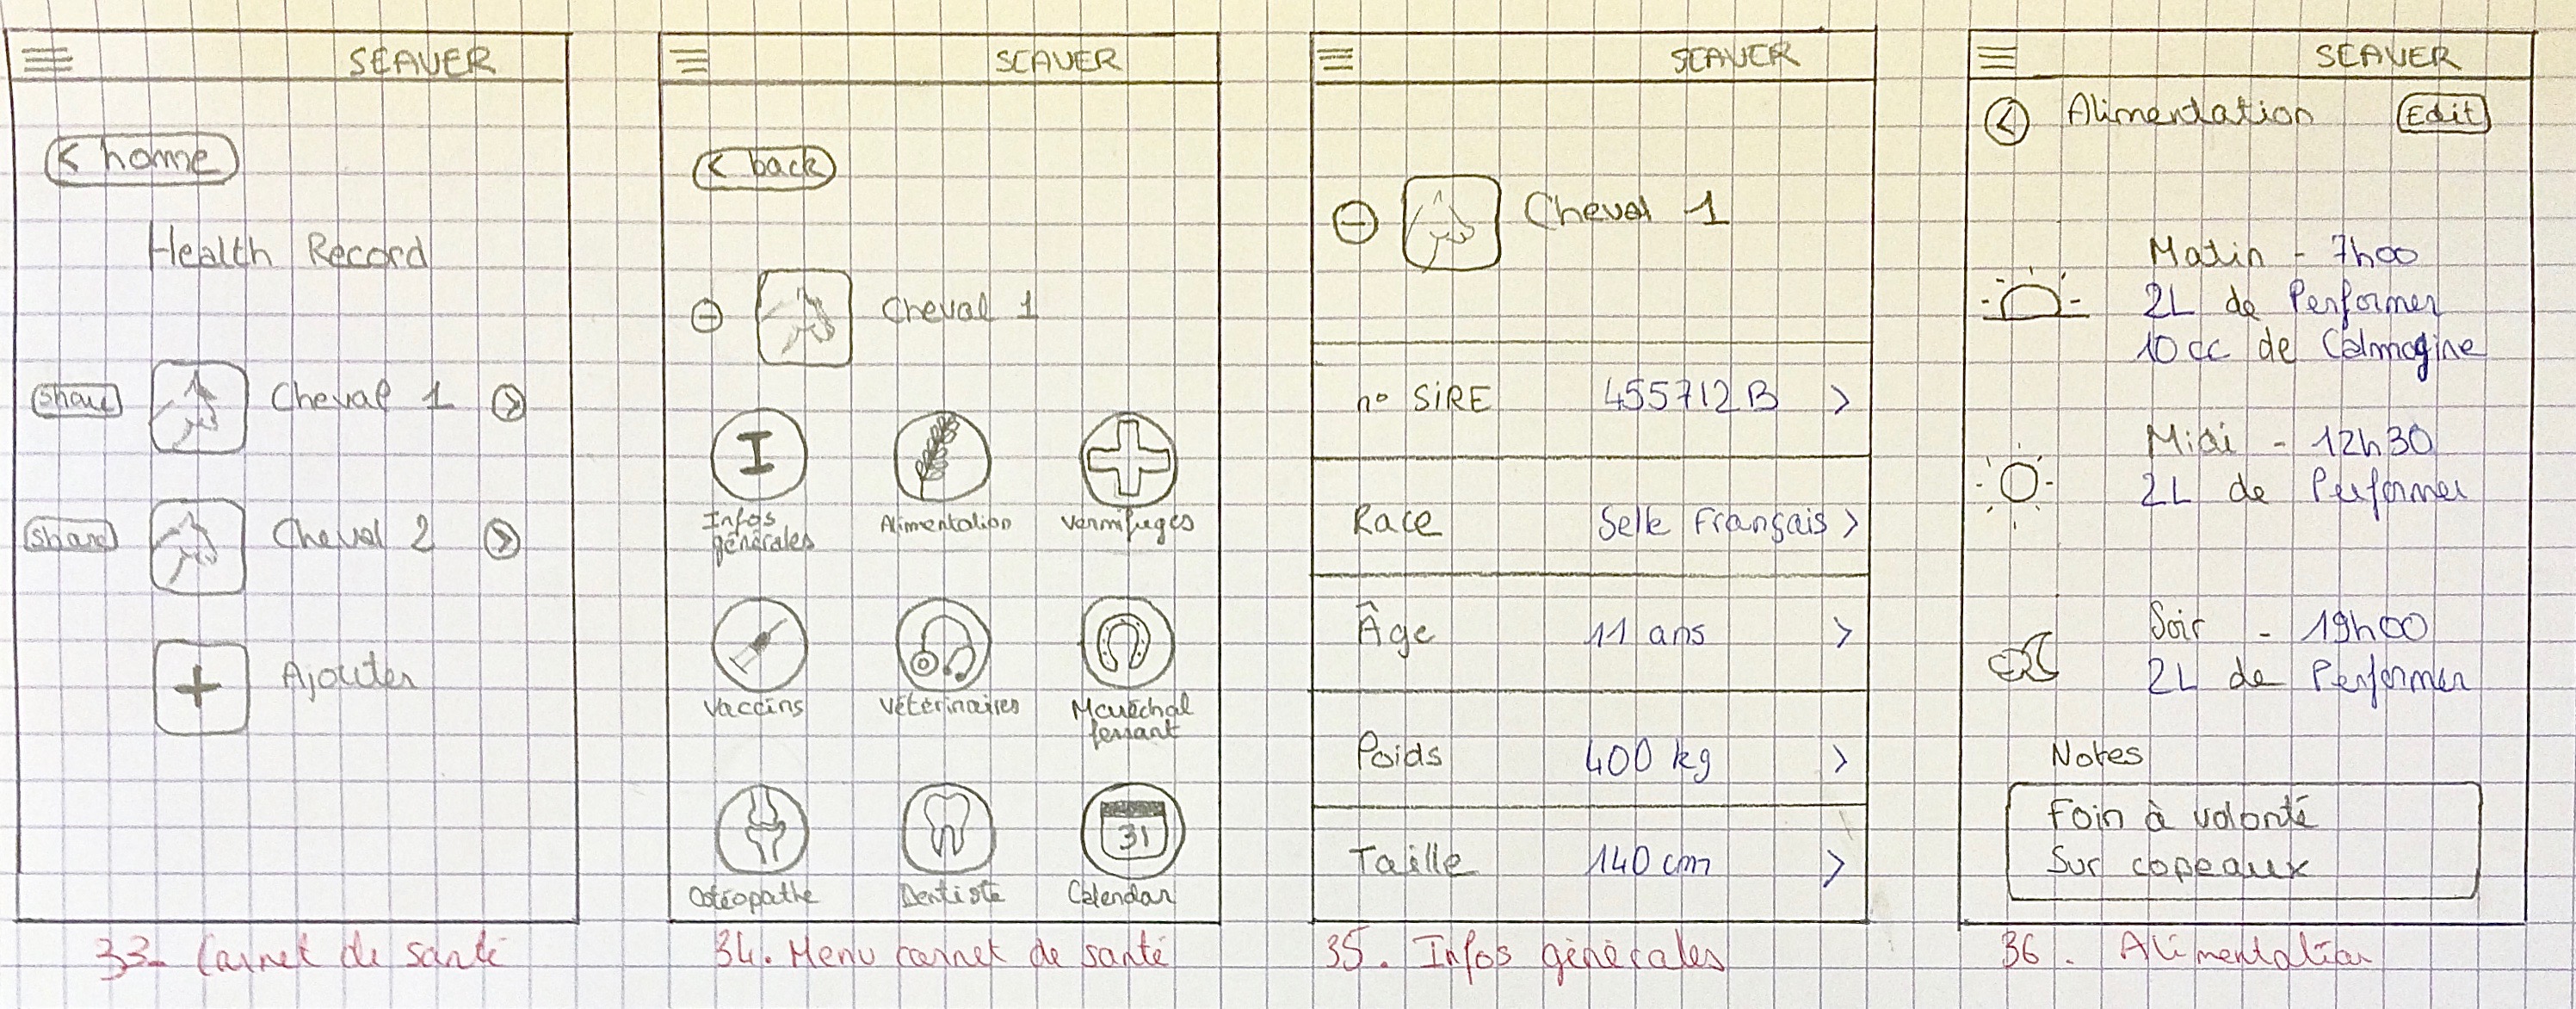 SEAVER
< home
Health Record
share Cheval 1 >
share Cheval 2 >
+ Ajouter
33. Carnet de santé
SEAVER
< back
Cheval 1
I
Infos
générales
Alimentation
Vermifuges
Vaccins
Vétérinaires
Maréchal
ferrant
31
Ostéopathe
Dentiste
Calendar
34. Menu carnet de santé
SEAVER
Cheval 1
n° SIRE 455712B >
Race Selle Français >
Âge 11 ans >
Poids 400 kg >
Taille 140 cm >
35. Infos générales
SEAVER
< Alimentation Edit
Matin - 7h00
2L de Performer
10cc de Calmagine
Midi - 12h30
2L de Performer
Soir - 19h00
2L de Performer
Notes
Foin à volonté
Sur copeaux
36. Alimentation